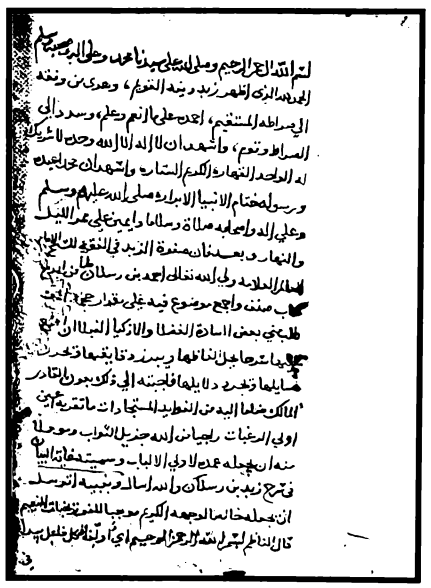 بسم الله الرحمن الرحيم وصلى الله على سيدنا محمد وعلى اله وصحبه وسلم
الحمد لله الذي اظهر زبد دينه القويم، وهدى من وفقه
الى صراطه المستقيم، احمده على ما انعم وعلم، وسدد الى
الصراط وقوم، واشهد ان لا اله الا الله وحده لا شريك
له الواحد القهار، الكريم الستار، واشهد ان محمدا عبده
ورسوله ختام الانبيا الابرار، صلى الله عليهم وسلم
وعلى اله واصحابه صلاة وسلاما دايمين على ممر الليل
والنهار، وبعد فان صفوة الزبد في الفقه
للعالم العلامه ولي الله تعالى احمد بن رسلان من
كتاب صنف واجمع موضوع فيه على مقدار حجمه
طلب مني بعض السادة الفضلا والاذكيا النبلا ان
عليها شرحا يحل الفاظها ويبرز دقايقها ويحرر
مسايلها ويجود دلايلها فاجبته الى ذلك بعون القادر
المالك ضاما اليه من الفوايد المستجادات ما تقر به اعين
اولي الرغبات راجيا من الله جزيل الثواب ومؤملا
منه ان يجعله عمدة لاولي الالباب وسميته غاية البيان
في شرح زبد بن رسلان والله اسال وبنبيه اتوسل
ان يجعله خالصا لوجهه الكريم موجبا للفوز بجنات النعيم
قال الناظم بسم الله الرحمن الرحيم اي